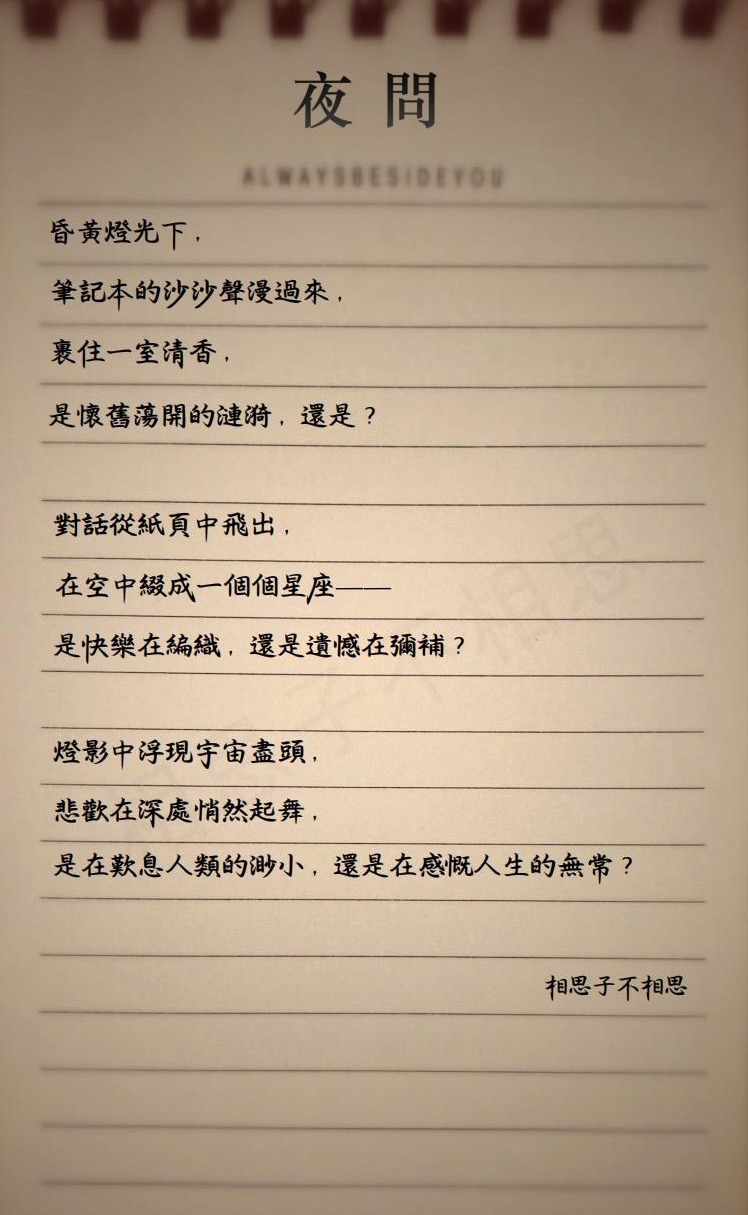 夜問
ALWAYSBESIDEYOU
昏黃燈光下，
筆記本的沙沙聲漫過來，
裹住一室清香，
是懷舊蕩開的漣漪，還是？
對話從紙頁中飛出，
在空中綴成一個個星座——
是快樂在編織，還是遺憾在彌補？
燈影中浮現宇宙盡頭，
悲歡在深處悄然起舞，
是在歎息人類的渺小，還是在感慨人生的無常？
相思子不相思
相思子不相思